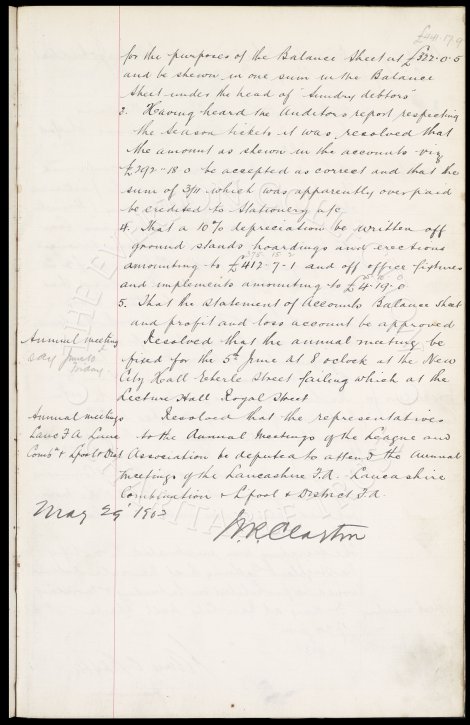 £441.17.9
for the purposes of the Balance Sheet at £322.0.5
and be shewn in one sum in the Balance
Sheet under the head of "Sundry debtors"
3. Having heard the Auditors report respecting
the Season tickets it was resolved that
the amount as shewn in the accounts viz
£292-18-0 be accepted as correct and that the
sum of 3/11 which was apparently over paid
be credited to Stationery a/c
4. That a 10% depreciation be written off
ground stands hoardings and erections
amounting to £412-7-1 and off office fixtures
and implements amounting to £4-19-0
5. That the Statement of Accounts Balance Sheet
and profit and loss account be approved
Annual meeting
say June 10
Friday
Resolved that the annual meeting be
fixed for the 5th June at 8 oclock at the New
City Hall Eberle Street failing which at the
Lecture Hall Royal Street
Annual meetings
Lancs F.A. Lancs
Combn & Lpool & Dist
Resolved that the representatives
to the Annual Meetings of the League and
Association be deputed to attend the Annual
meetings of the Lancashire F.A. Lancashire
Combination & Lpool & District F.A.
May 29 1903
W.R. Clayton